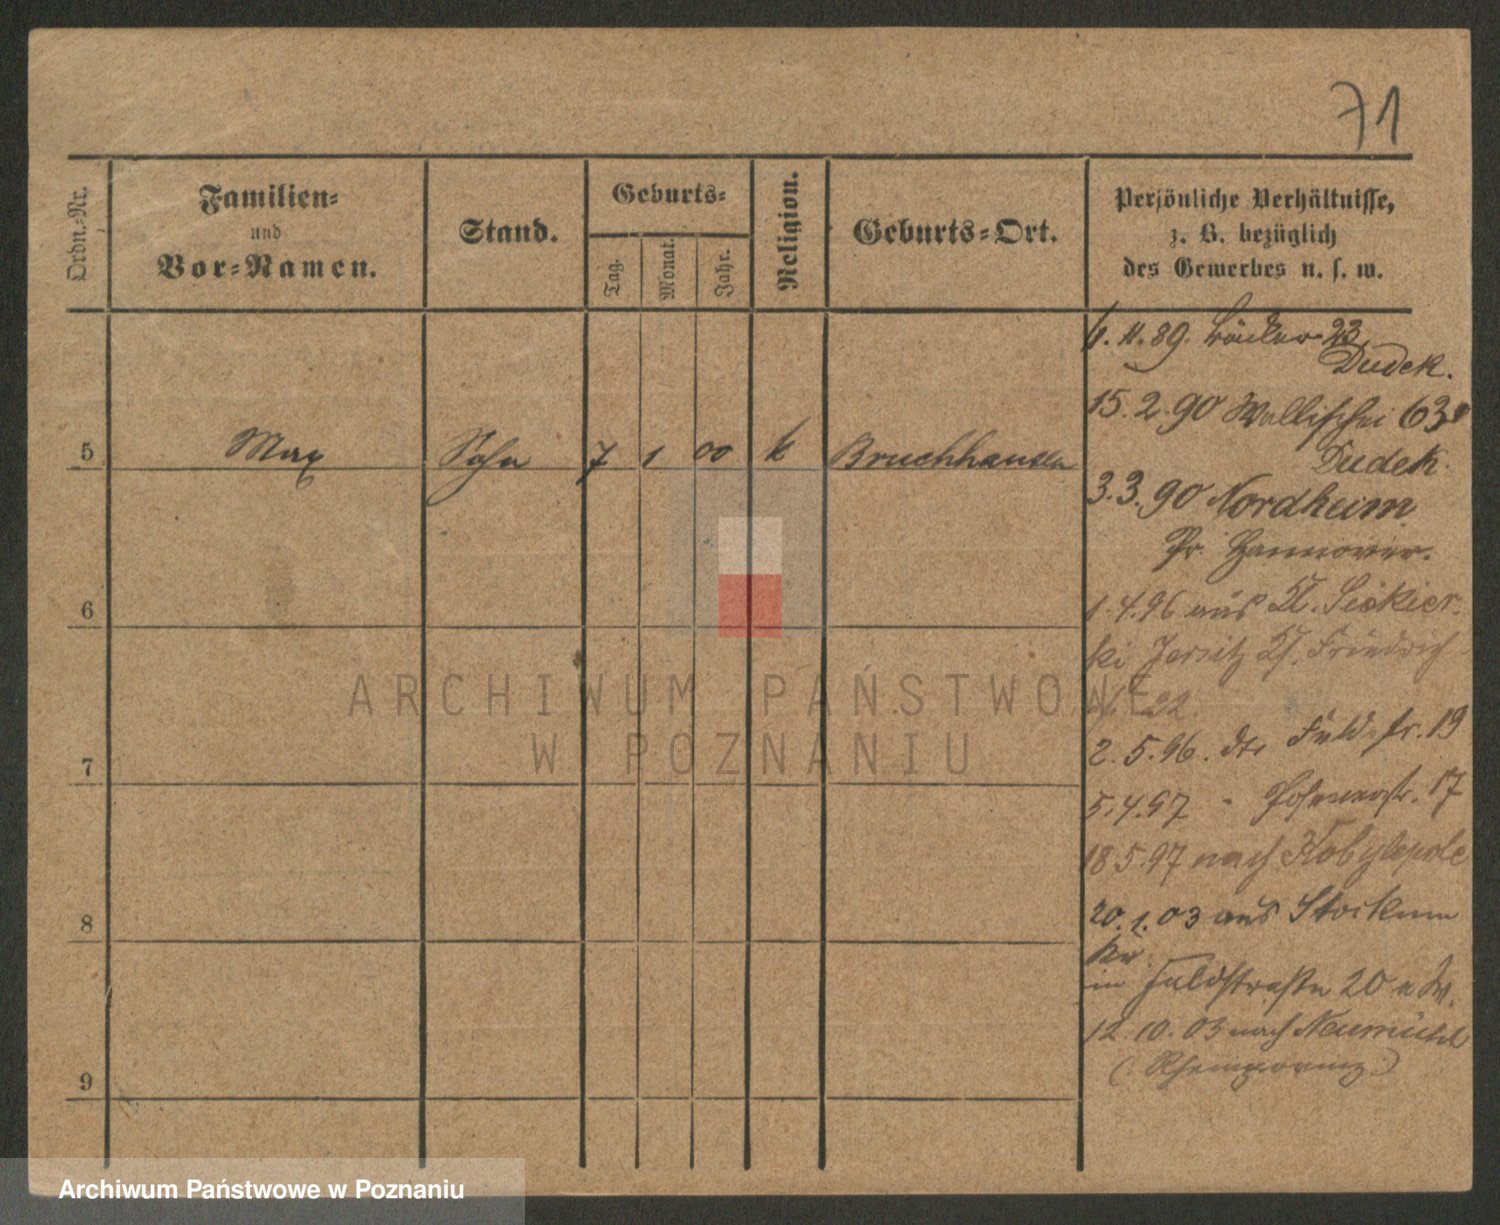 71
Ordn.-Nr.
Familien-
und
Vor-Namen.
Stand.
Geburts-
Tag.
Monat.
Jahr.
Religion.
Geburts-Ort.
Persönliche Verhältnisse,
z. B. bezüglich
des Gewerbes u. s. w.
11.89. Bäcker 23
Dudek.
15.2.90 Wallischei 63
Dudek.
5 Max Sohn 7 1 00 k Bruchhausen
3.3.90 Nordheim
Pr. Hannover.
6
1.4.96 aus Siekier-
ki Jersitz Friedrich
22.
7
2.5.96. str. 19
5.4.97 - Posenerstr. 17
18.5.97 nach Kobylepole
8
20.1.03 aus Stockum
Kr.
in Feldstraße 20
12.10.03 nach Neumühl
(Rheinprovinz)
9
ARCHIWUM PAŃSTWOWE
W POZNANIU
Archiwum Państwowe w Poznaniu